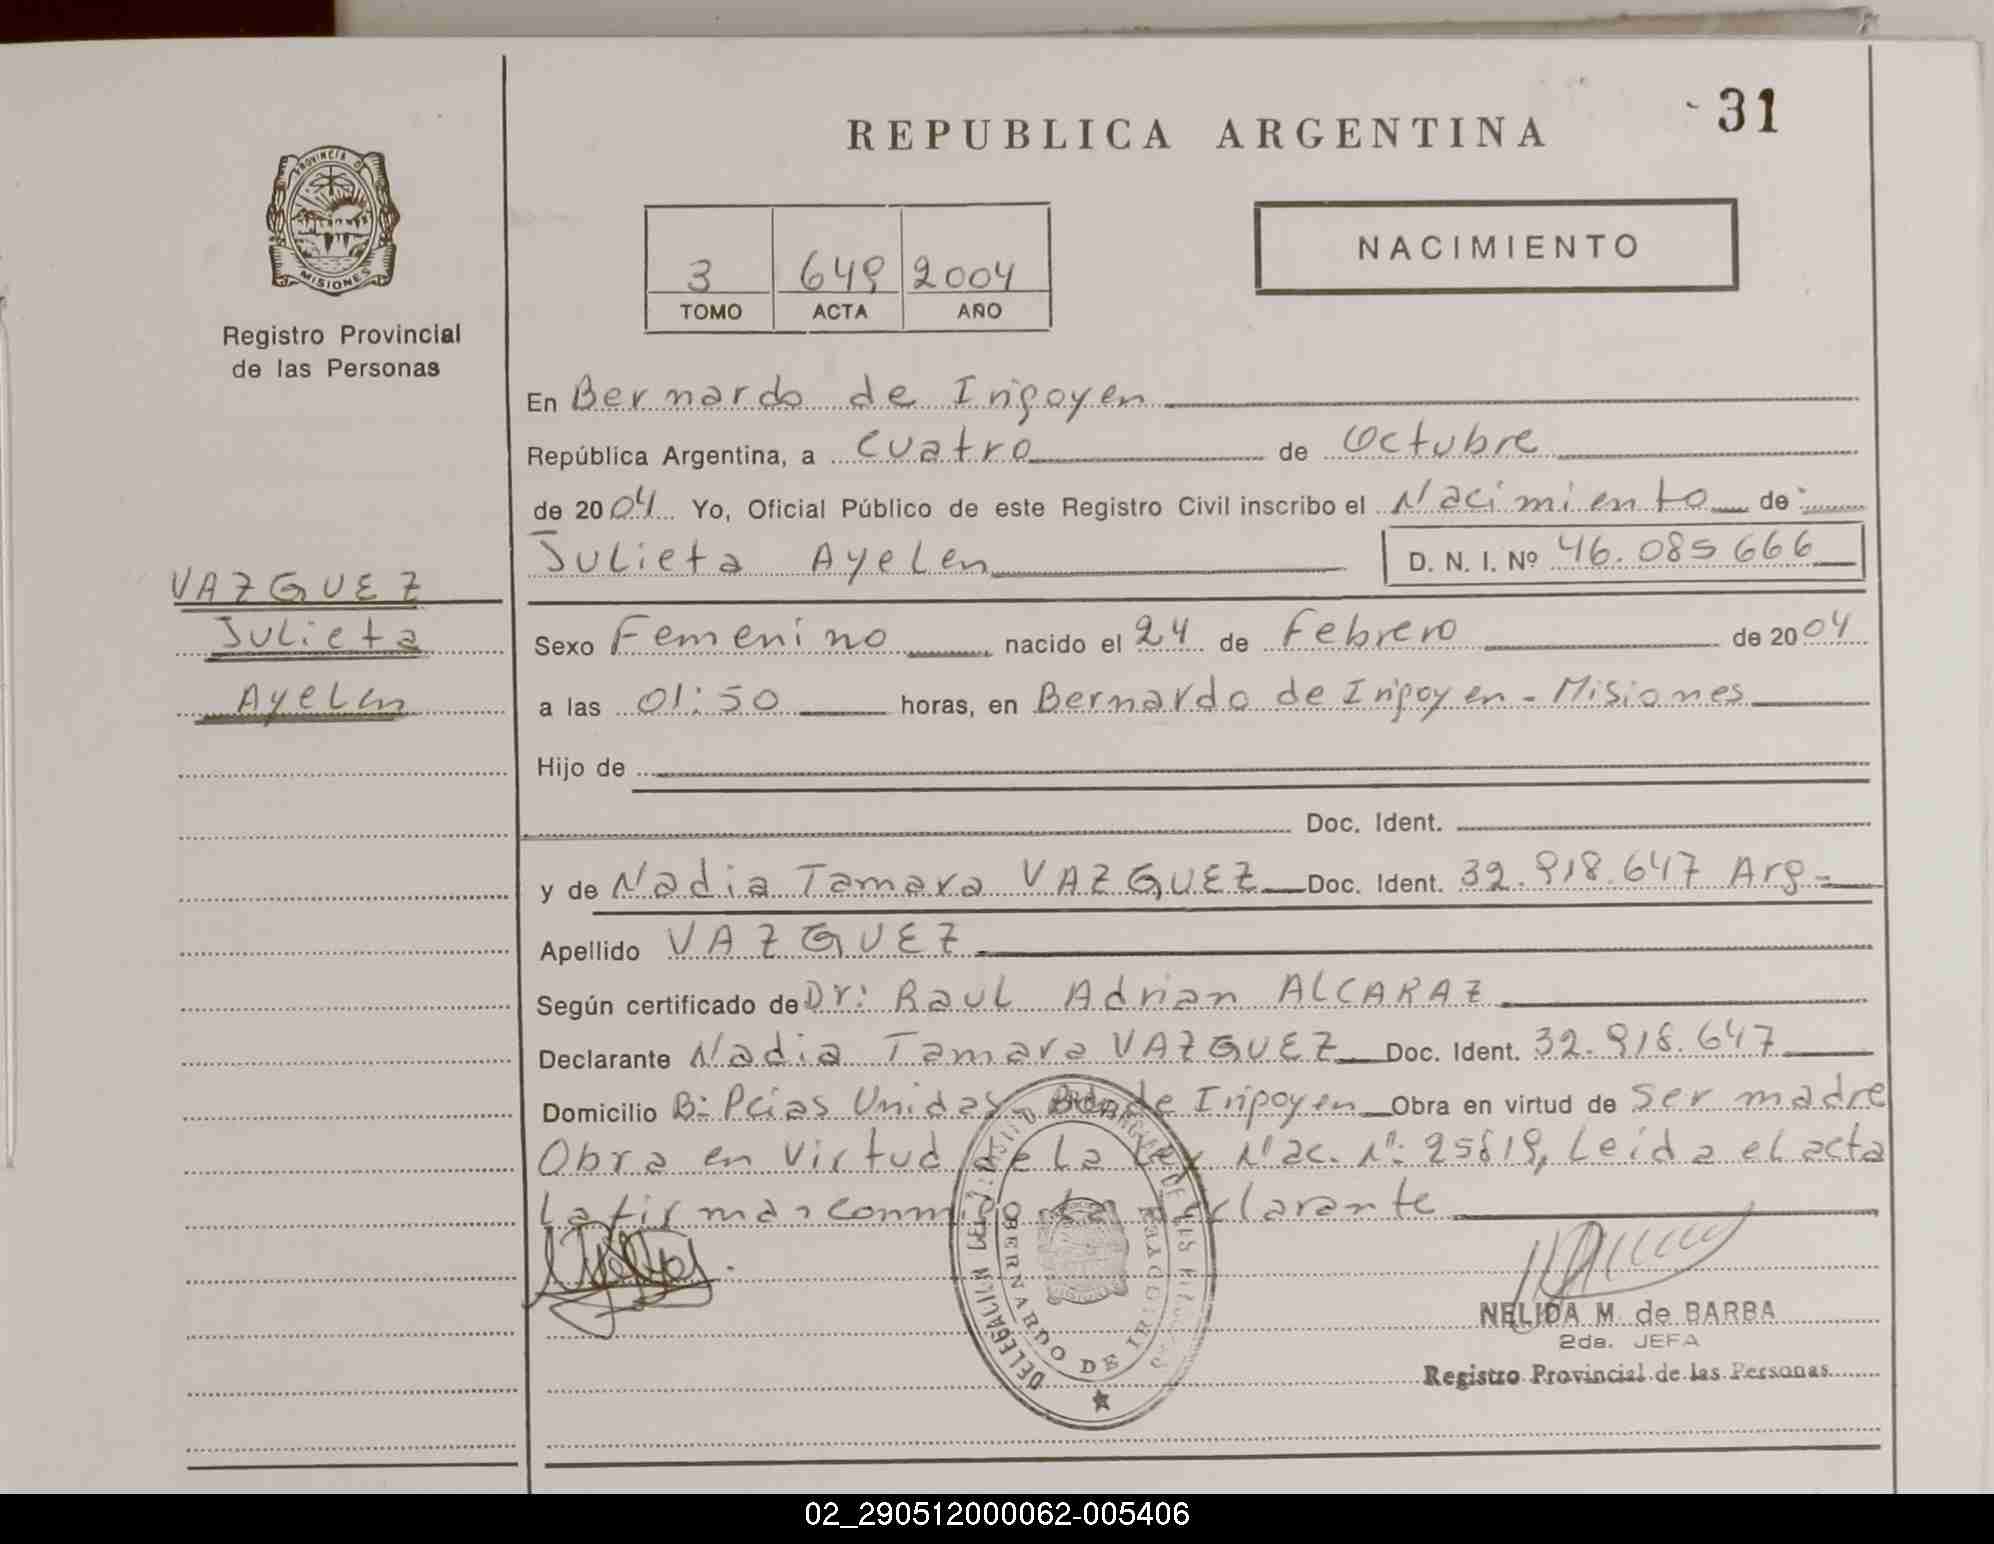 31
REPUBLICA ARGENTINA
NACIMIENTO
3 649 2004
TOMO ACTA AÑO
PROVINCIA DE MISIONES
Registro Provincial
de las Personas
VAZQUEZ
Julieta
Ayelen
En Bernardo de Irigoyen
República Argentina, a Cuatro de Octubre
de 2004. Yo, Oficial Público de este Registro Civil inscribo el Nacimiento de
Julieta Ayelen D. N. I. Nº 46.085666
Sexo Femenino nacido el 24 de Febrero de 2004
a las 01:50 horas, en Bernardo de Irigoyen - Misiones
Hijo de
Doc. Ident.
y de Nadia Tamara VAZQUEZ Doc. Ident. 32.918.647 Arg-
Apellido VAZQUEZ
Según certificado de Dr: Raul Adrian ALCARAZ
Declarante Nadia Tamara VAZQUEZ Doc. Ident. 32.918.647
Domicilio Bº Pcias Unidas - Bdo de Irigoyen Obra en virtud de ser madre
Obra en virtud de la Ley Nac. Nº: 25819, Leida el acta
la firma conmigo la declarante
BERNARDO DE IRIGOYEN
NELIDA M. de BARBA
2da. JEFA
Registro Provincial de las Personas
02_290512000062-005406